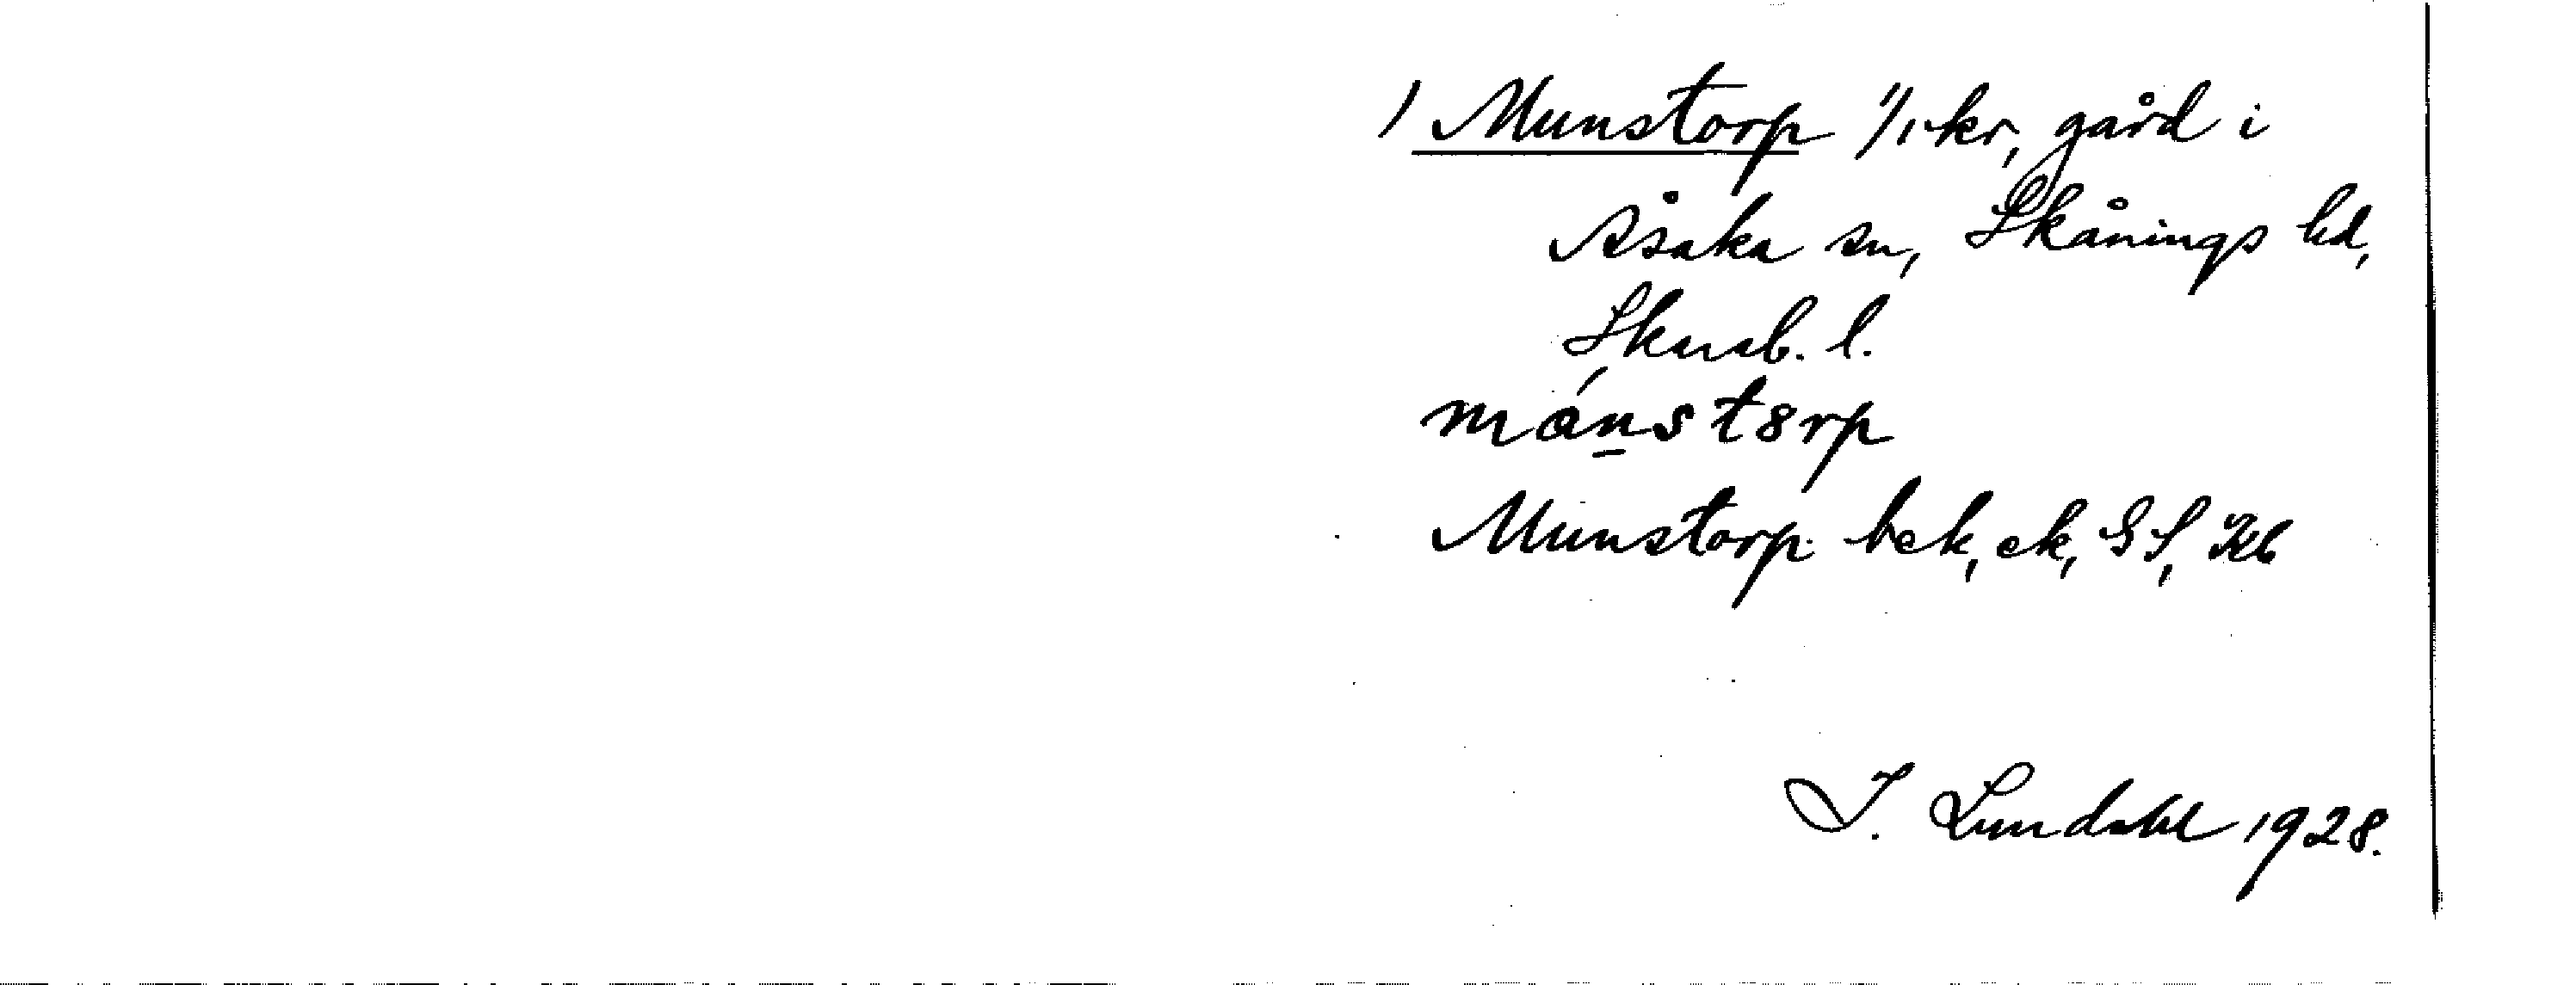 ) Munstorp 1/1 kr, gård i
Åsaka sn, Skånings hd,
Skarab. l.
mónstorp
Munstorp bek, ek, GS, Kb
I. Lundahl 1928.